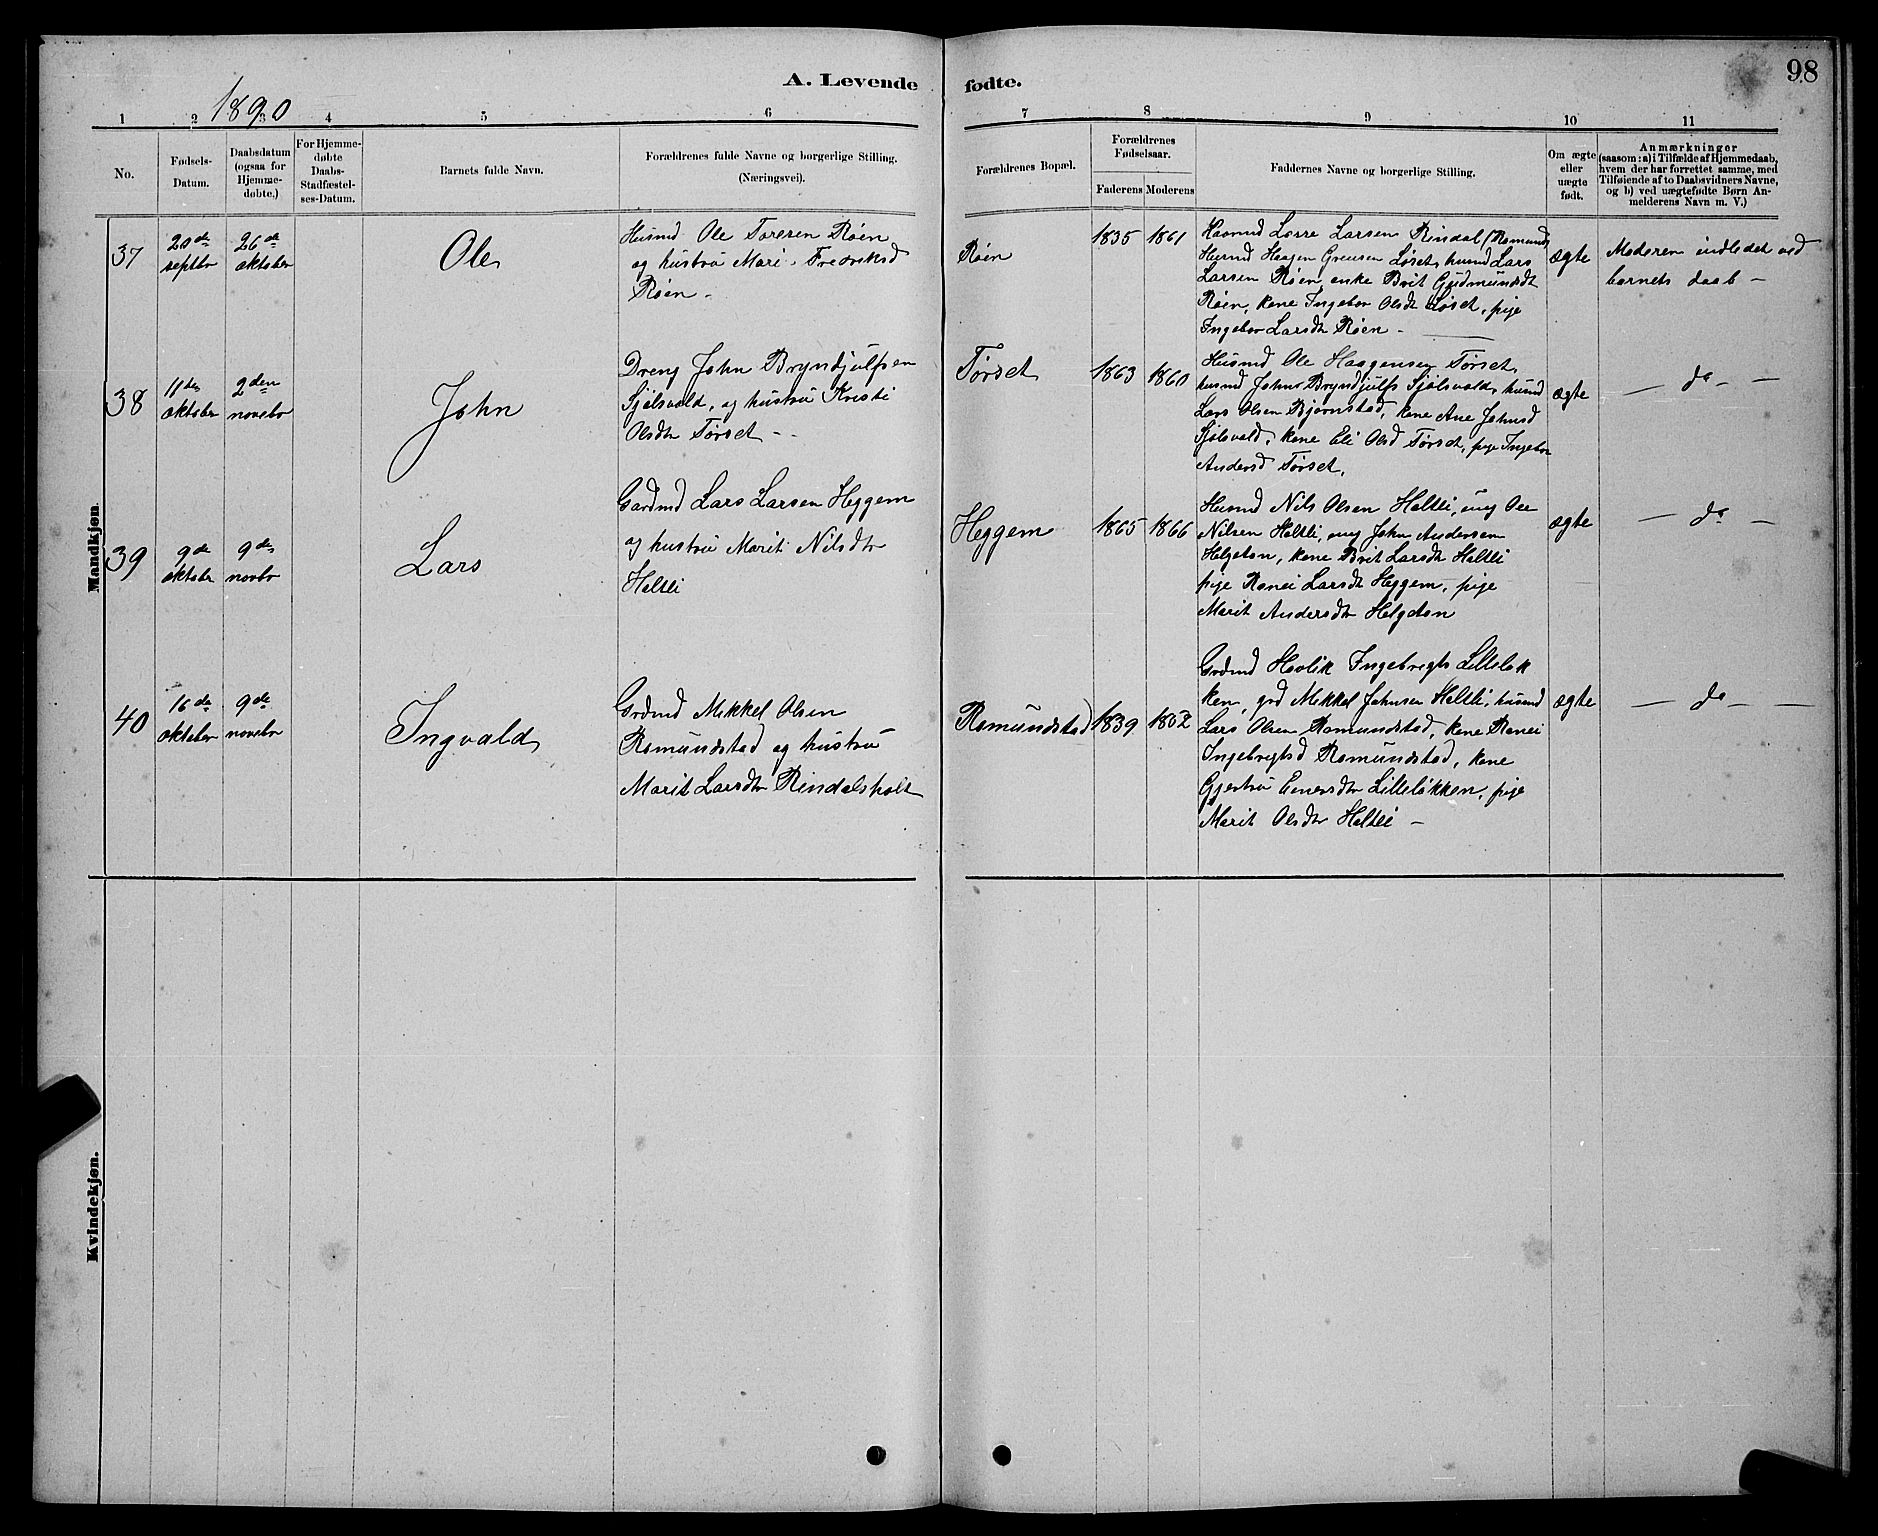 98
A. Levende fødte.
1890
1 2 3 4 5 6 7 8 9 10 11
No.
Fødsels-
Datum.
Daabsdatum
(ogsaa for
Hjemme-
døbte.)
For Hjemme-
døbte
Daabs-
Stadfæstel-
ses-Datum.
Barnets fulde Navn.
Forældrenes fulde Navne og borgerlige Stilling.
(Næringsvei).
Forældrenes Bopæl.
Forældrenes
Fødselsaar.
Faderens Moderens
Faddernes Navne og borgerlige Stilling.
Om ægte
eller
uægte
født.
Anmærkninger
(saasom: a) i Tilfælde af Hjemmedaab,
hvem der har forrettet samme, med
Tilføiende af to Daabsvidners Navne,
og b) ved uægtefødte Børn An-
melderens Navn m. V.)
Mandkjøn.
37
20de
septbr
26de
oktober
Ole
Husmd Ole Toresen Røen
og hustru Mari Fredriksd
Røen -
Røen
1835 1861
Larsen Rindal (Romund)
Husmd Haagen Løset, husmd Lars
Larsen Røen, enke Brit Gudmundsdt
Røen, kone Ingebor Olsdt Løset, pige
Ingebor Larsdt Røen -
ægte
Moderen indledet ved
barnets daab -
38
11de
oktober
2den
novebr
John
Dreng John Bryndjulfsen
Sjølsvold, og hustru Kristi
Olsdtr Tørset - -
Tørset
1863 1860
Husmd Ole Haagensen Tørset,
husmd John Bryndjulfs Sjølsvold, husmd
Lars Olsen Bjørnstad, kone Ane Johnsd
Sjølsvold, kone Eli Olsd Tørset, pige Ingebor
Andersd Tørset.
ægte
- do - -
39
9de
oktober
9de
novbr
Lars
Gardmd Lars Larsen Heggem
og hustru Marit Nilsdtr
Heltli
Heggem
1865 1866
Husmd Nils Olsen Heltli, ung Ole
Nilsen Heltli, ung John Andersen
Helgeton, kone Brit Larsdt Heltli
pige Ranei Larsdt Heggem, pige
Marit Andersdtr Helgeton
ægte
- do -
40
16de
oktober
9de
novebr
Ingvald
Grdmd Mikkel Olsen
Romundstad og hustru
Marit Larsdtr Rindalsholt
Romundstad
1839 1852
Grdmd Hovlik Ingebrigts Lilleløk
ken, grd Mikkel Johnsen Heltli, husmd
Lars Olsen Romundstad, kone Ranei
Ingebrigtsd Romundstad, kone
Gjertru Einersdtr Lilleløkken, pige
Marit Olsdtr Heltli -
ægte
- do - -
Kvindekjøn.